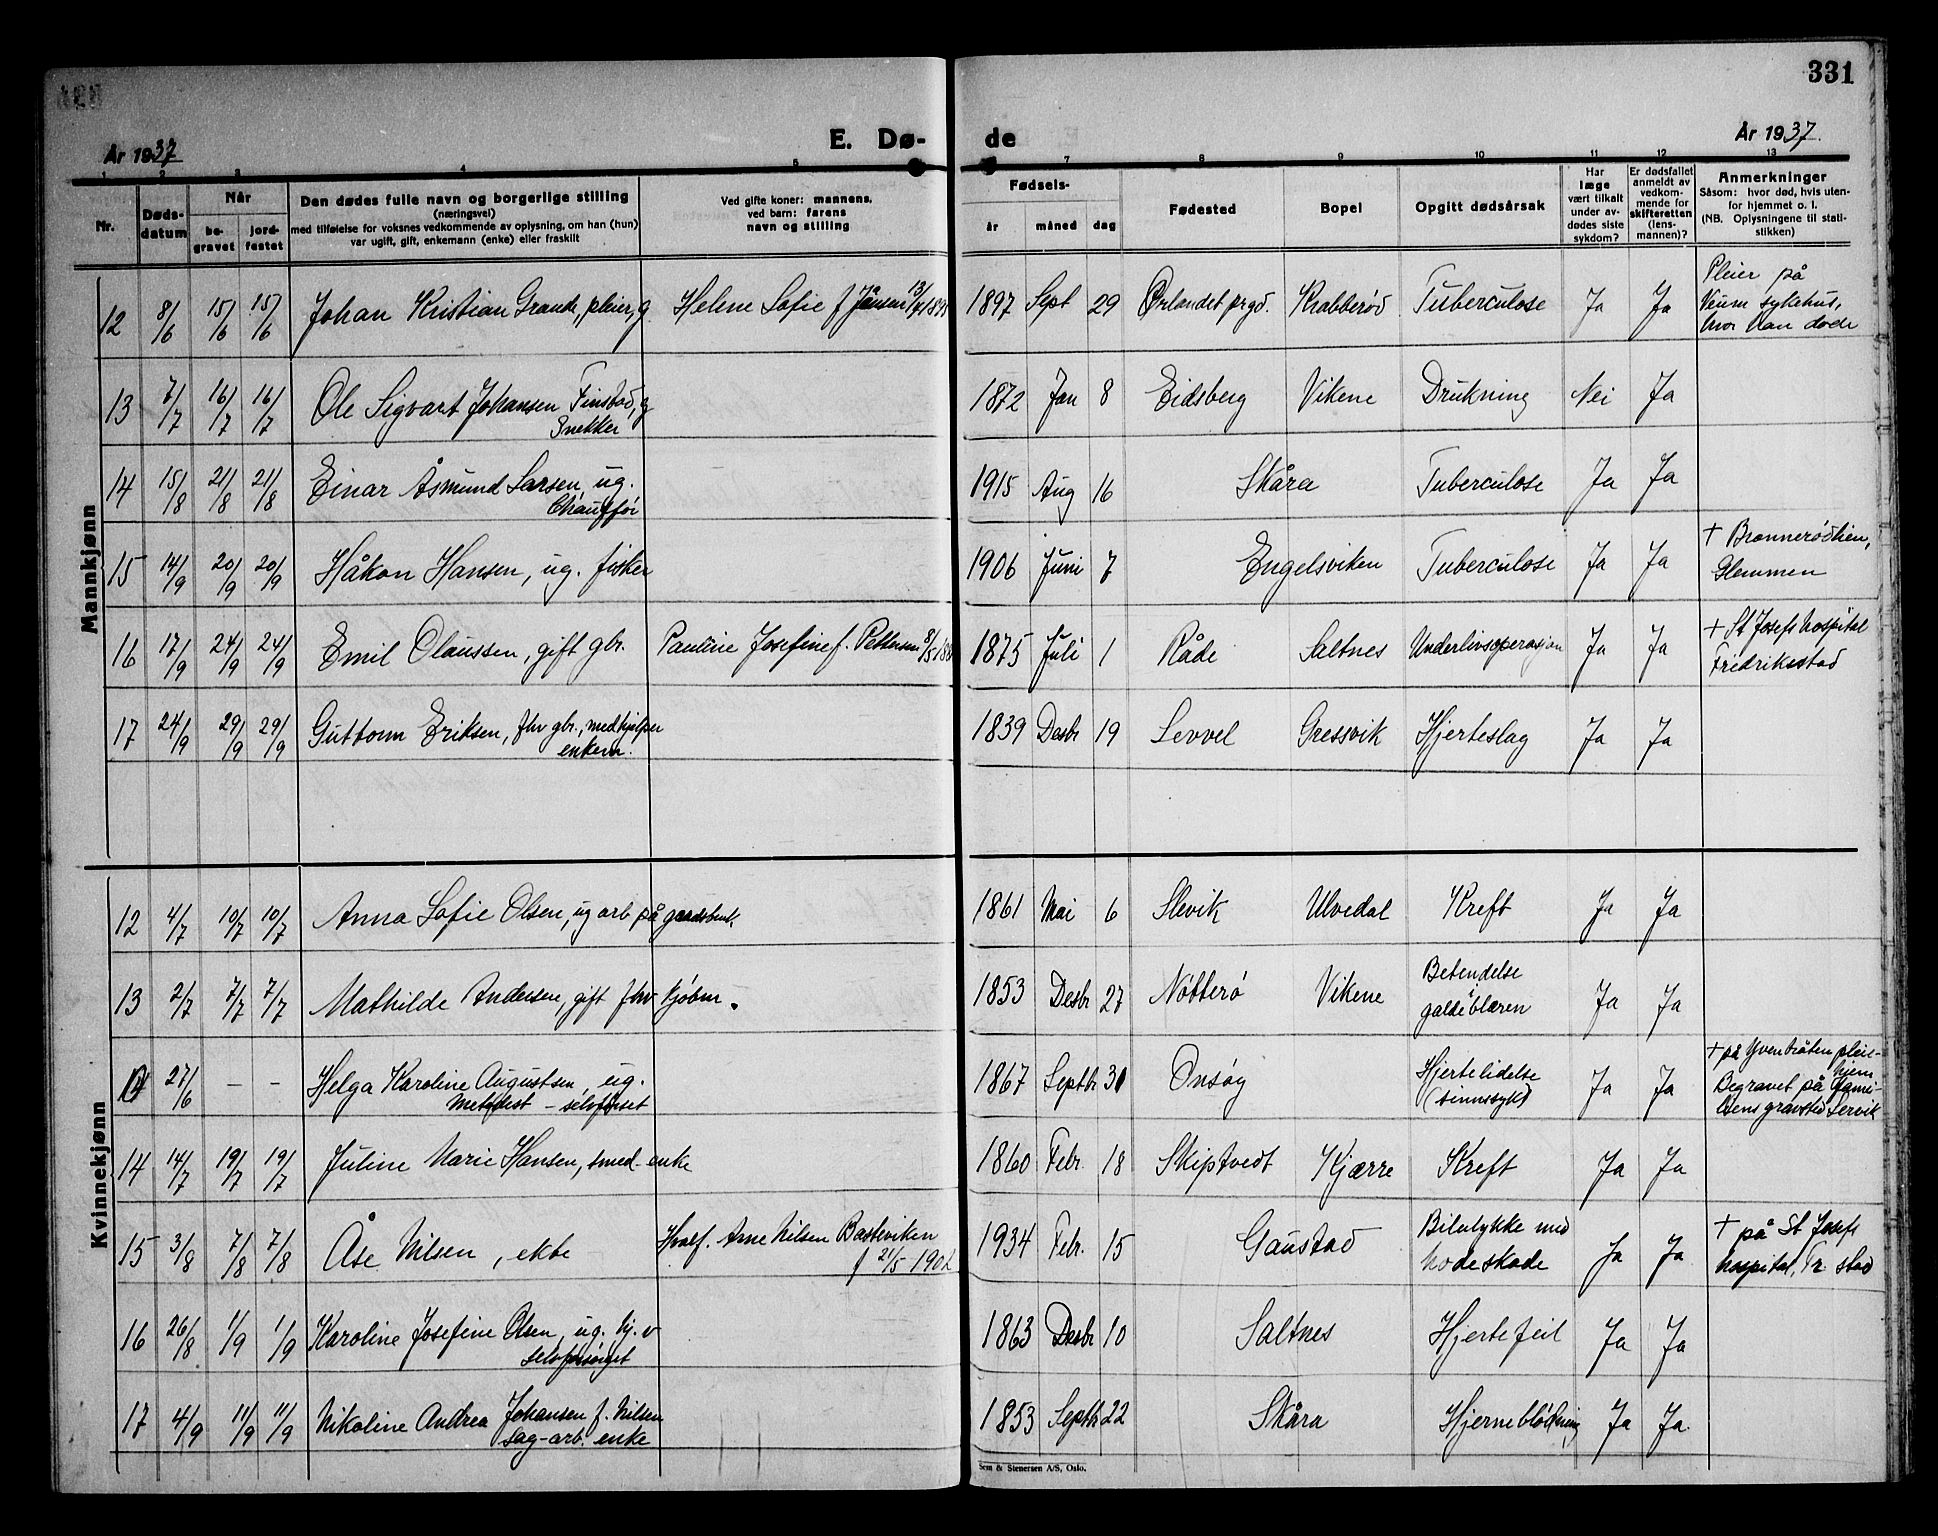 331
År 1937
E. Dø-
de
År 1937.
1 2 3 4 5 7 8 9 10 11 12 13
Nr.
Døds-
datum
Når
be-
gravet
jord-
festet
Den dødes fulle navn og borgerlige stilling
(næringsvei)
med tilføielse for voksnes vedkommende av oplysning, om han (hun)
var ugift, gift, enkemann (enke) eller fraskilt
Ved gifte koner: mannens,
ved barn: farens
navn og stilling
Fødsels-
år måned dag
Fødested
Bopel
Opgitt dødsårsak
Har
læge
vært tilkalt
under av-
dødes siste
sykdom?
Er dødsfallet
anmeldt av
vedkom-
mende for
skifteretten
(lens-
mannen)?
Anmerkninger
Såsom: hvor død, hvis uten-
for hjemmet o. l.
(NB. Oplysningene til stati-
stikken)
Mannkjønn
12 8/6 15/6 15/6 Johan Kristian Grande, pleier, g. Helene Sofie f Jansen 1897 Sept 29 Ørlandet prgd. Krabberød Tuberculose Ja Ja Pleier på
Veum sykehus,
hvor han døde
13 7/7 16/7 16/7 Ole Sigvart Johansen Finstad, g
Snekker
1872 Jan 8 Eidsberg Vikene Drukning Nei Ja
14 15/8 21/8 21/8 Einar Åsmund Larsen, ug.
Chauffør
1915 Aug 16 Skåra Tuberculose Ja Ja
15 14/9 20/9 20/9 Håkon Hansen, ug. fisker 1906 Juni 7 Engelsviken Tuberculose Ja Ja + Brønnerødlien,
Glemmen
16 17/9 24/9 24/9 Emil Olaussen, gift gbr. Pauline Josefine f. Pettersen 1875 Juli 1 Råde Saltnes Underlivsoperasjon Ja Ja + St Josefs hospital
Fredrikstad
17 24/9 29/9 29/9 Guttorm Eriksen, fhv gbr., medhjelper
enkem.
1839 Desbr 19 Levvel Gressvik Hjerteslag Ja Ja
Kvinnekjønn
12 4/7 10/7 10/7 Anna Sofie Olsen, ug arb på gaardsbruk. 1861 Mai 6 Slevik Ulvedal Kreft Ja Ja
13 2/7 7/7 7/7 Mathilde Andersen, gift fhv kjøbm. 1853 Desbr 27 Nøtterø Vikene Betendelse
i galdeblæren Ja Ja
27/6 - - Helga Karoline Augustsen, ug.
Metodist - selvforset
1867 Septbr Onsøy Hjertelidelse
(sinnssyk) Ja Ja + på Yventråten pleie-
hjem
Begravet på fami-
liens gravsted Lervik
14 14/7 19/7 19/7 Juline Marie Hansen, smed-enke 1860 Febr. 18 Skiptvedt Kjærre Kreft Ja Ja
15 3/8 7/8 7/8 Åse Nilsen, ekte Hvalf. Arne Nilsen Basteviken
f 21/5-1902
1934 Febr. 15 Gaustad Bilulykke med
hodeskade Ja Ja + på St Josefs
hospital, Fr. stad
16 26/8 1/9 1/9 Karoline Josefine Olsen, ug. hj. v
selvforsørget
1863 Desbr 10 Saltnes Hjertefeil Ja Ja
17 4/9 11/9 11/9 Nikoline Andrea Johansen f. Nilsen
sag-arb. enke
1853 Septbr 22 Skåra Hjerneblødning Ja Ja.
Sem & Stenersen A/S, Oslo.